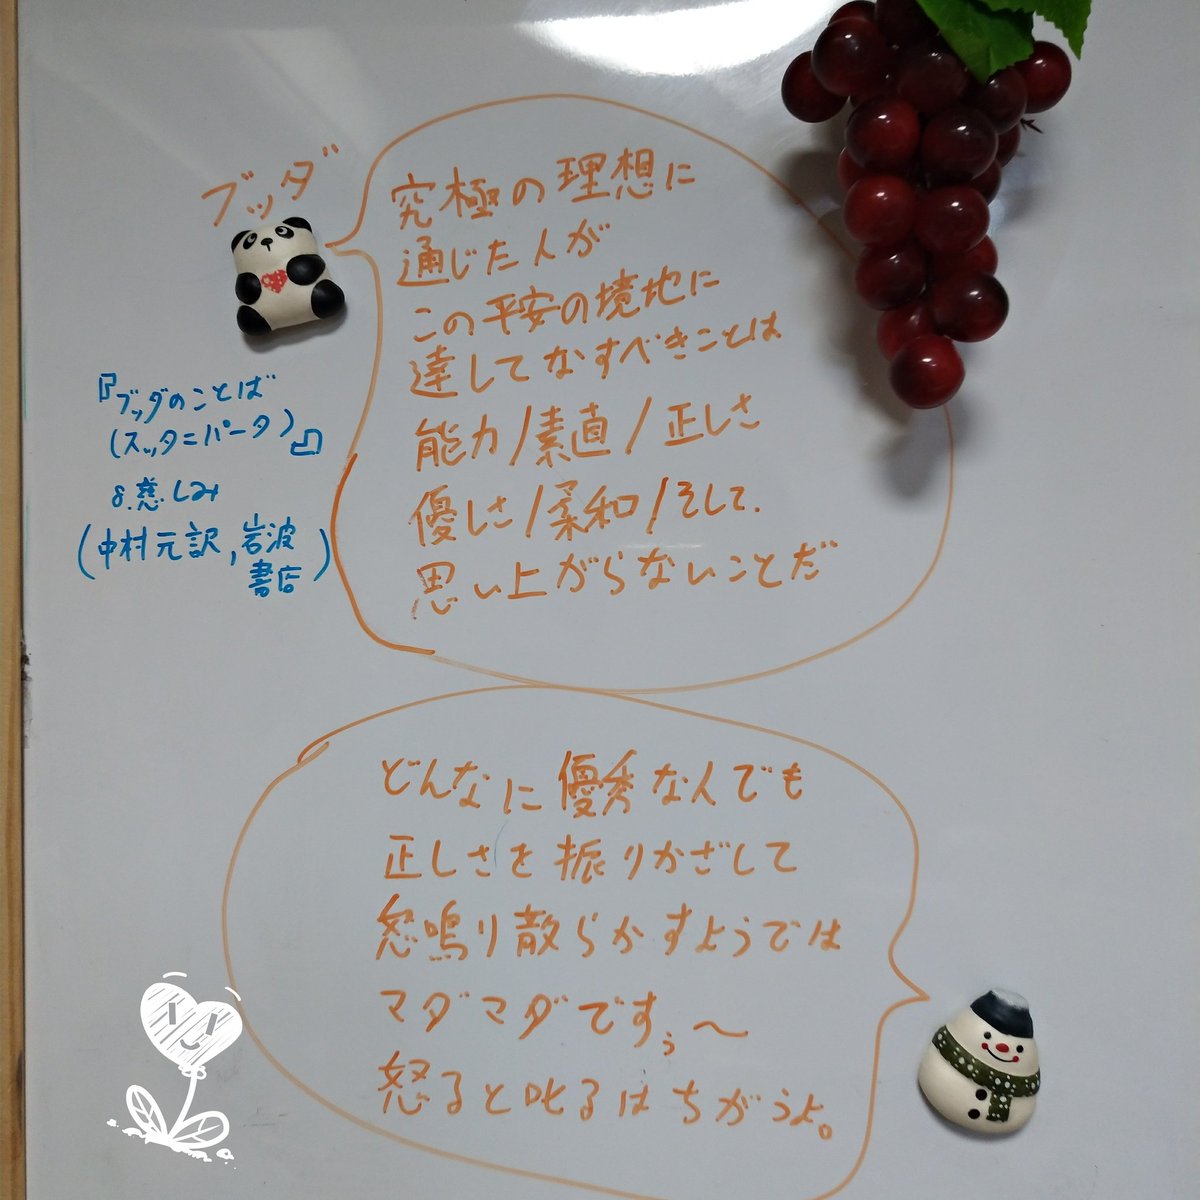 ブッダ
究極の理想に
通じた人が
この平安の境地に
達してなすべきことは
能力/素直/正しさ
優しさ/柔和/そして.
思い上がらないことだ
『ブッダのことば
(スッタニパータ)』
8.慈しみ
(中村元訳,岩波
書店)
どんなに優秀な人でも
正しさを振りかざして
怒鳴り散らかすようでは
マダマダですぅ〜
怒ると叱るはちがうよ。